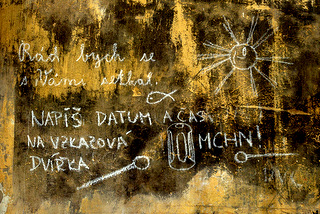 Rád bych se
s Vámi setkal.
NAPIŠ DATUM A ČAS
NA VZKAZOVÁ MCHN!
DVÍŘKA